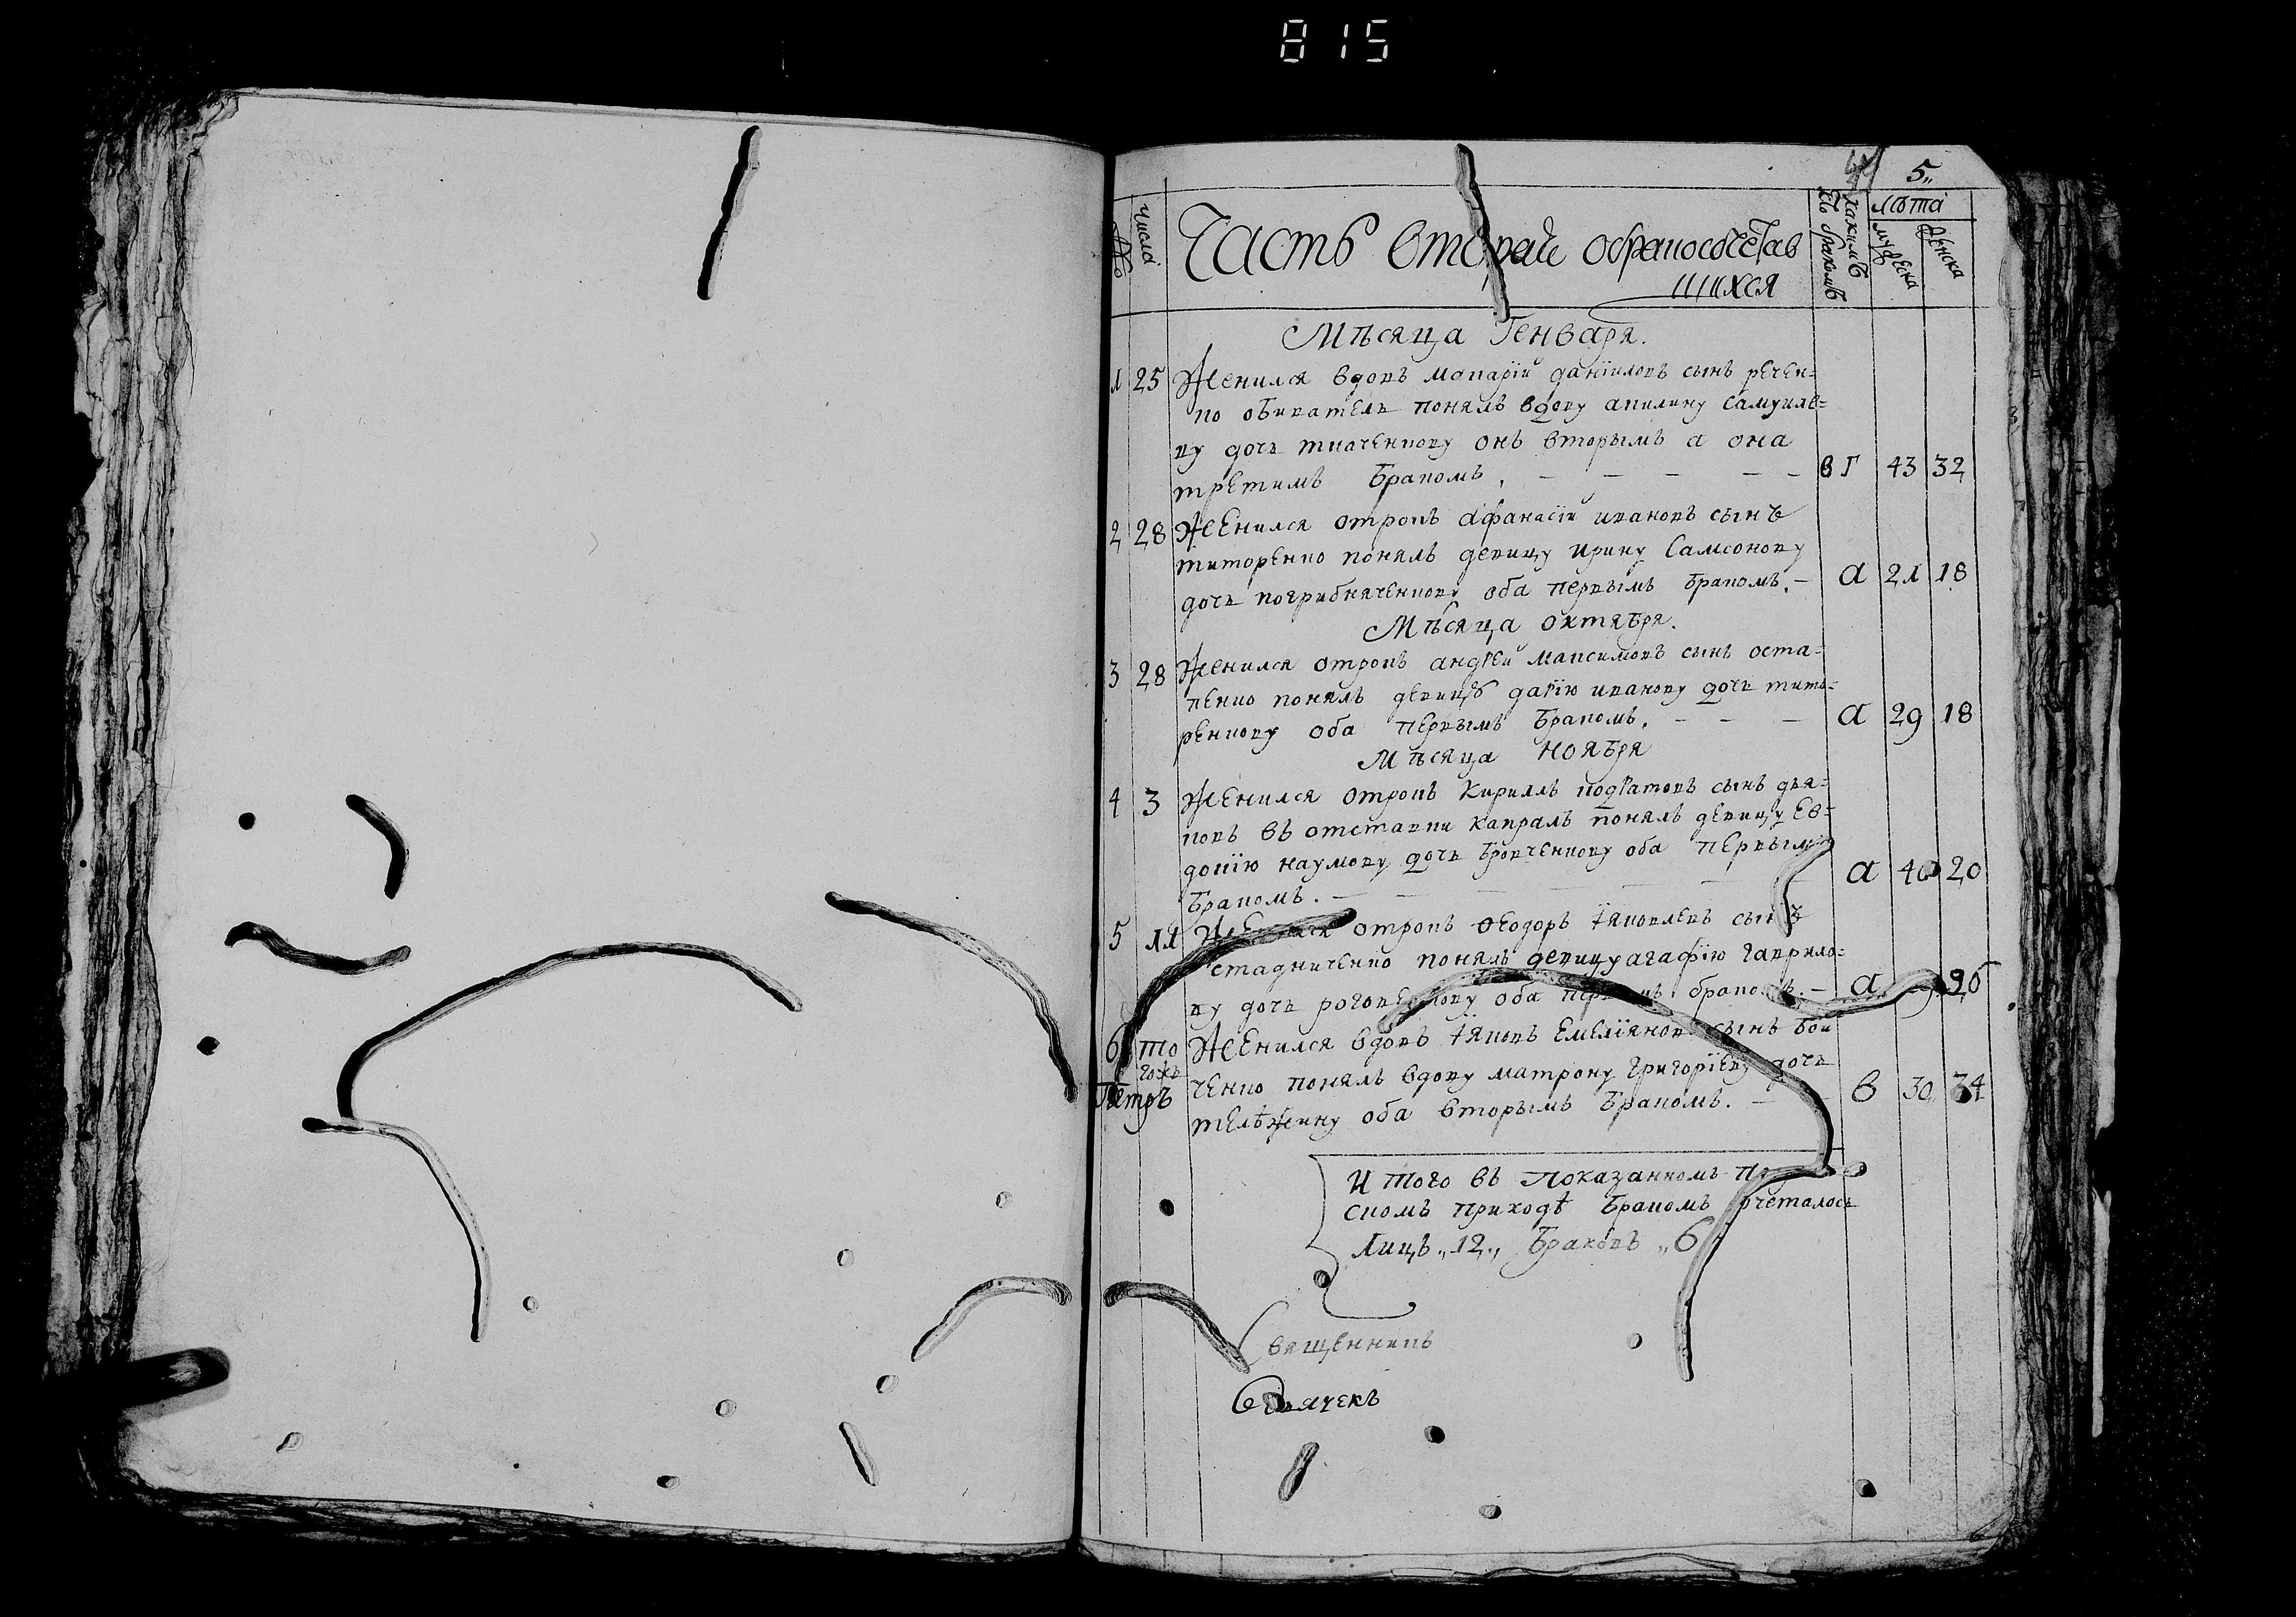 815
5„
№ числа Часть вторая обракосочетав
шихся
какимъ
бракомъ
лѣта
мужеска
женска
Мѣсяца Генваря.
1 25 Женился вдовъ макарїй данїиловъ сынъ речен=
ко обиватель понялъ вдову акилину самуиле=
ву дочь ткаченкову онъ вторымъ а она
третимъ бракомъ. – – – – – вг 43 32
2 28 Женился отрокъ афанасїй ивановъ сынъ
титоренко понялъ девицу ирину самсонову
дочь погрибняченкову оба первымъ бракомъ. – а 21 18
Мѣсяца октября.
3 28 Женился отрокъ андрей максимовъ сынъ оста=
пенко понялъ девицу дарїю иванову дочь тито=
ренкову оба первымъ бракомъ. – – – а 29 18
Мѣсяца ноября
4 3 Женился отрокъ кириллъ кодратовъ сынъ дья=
ковъ въ отставки капралъ понялъ девицу ев=
докїю наумову дочь бровченкову оба первым
бракомъ. – – – – – – а 40 20
5 11 Женился отрокъ феодоръ їяковлевъ сынъ
стадниченко понялъ девицу агафїю гаврило=
ву дочь оба бракомъ. – а
6 того жъ Женился вдовъ їяковъ емелїяновъ сынъ бой
Петръ ченко понялъ вдову матрону григорїеву дочь
тележину оба вторымъ бракомъ. – – в 30 34
И того въ показанномъ
скомъ приходѣ бракомъ сочеталось
Лицъ „12„ Браковъ „6
Священникъ
Дьячекъ